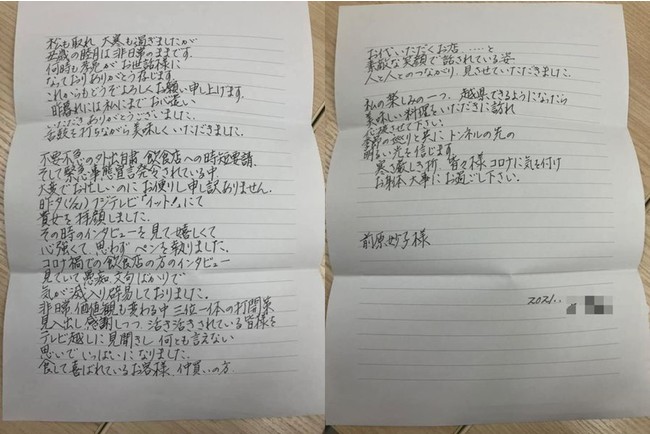 松も取れ 大寒も過ぎましたが
丑歳の睦月は非日常のままです.
何時も 
なっておりありがとう存じます.
これからもどうぞよろしくお願い申し上げます.
昨暮れには私にまでお心遣い
いただきありがとうございました.
舌鼓を打ちながら美味しくいただきました.
不要不急の外出自粛、飲食店への時短要請.
そして緊急事態宣言発令されている中
大変でお忙しいのにお便りし申し訳ありません.
昨夕(じん) フジテレビ「イット!」にて
貴女を拝顔しました.
その時のインタビューを見て嬉しくて
心強くて 思わず ペンを執りました.
コロナ禍での飲食店の方のインタビュー
見ていて愚痴、文句ばかりで
気が滅入り辟易しておりました.
非日常、価値観も変わる中 三位一体の打開策
見入出し 感謝しつつ 活き活きされている皆様を
テレビ越しに見聞きし 何とも言えない
思いでいっぱいになりました.
食して喜ばれているお客様、仲買いの方、
お代いただくお店……と
素敵な笑顔で話されている姿
人と人とのつながり、見させていただきました.
私の楽しみの一つ、越県できるようになったら
美味しい料理をいただきに訪れ
させて下さい.
季節の巡りと共に トンネルの先の
明るい光を信じます.
寒さ厳しき折、皆々様 コロナに気を付け
お身体大事にお過ごし下さい.
前原妙子様
2021..